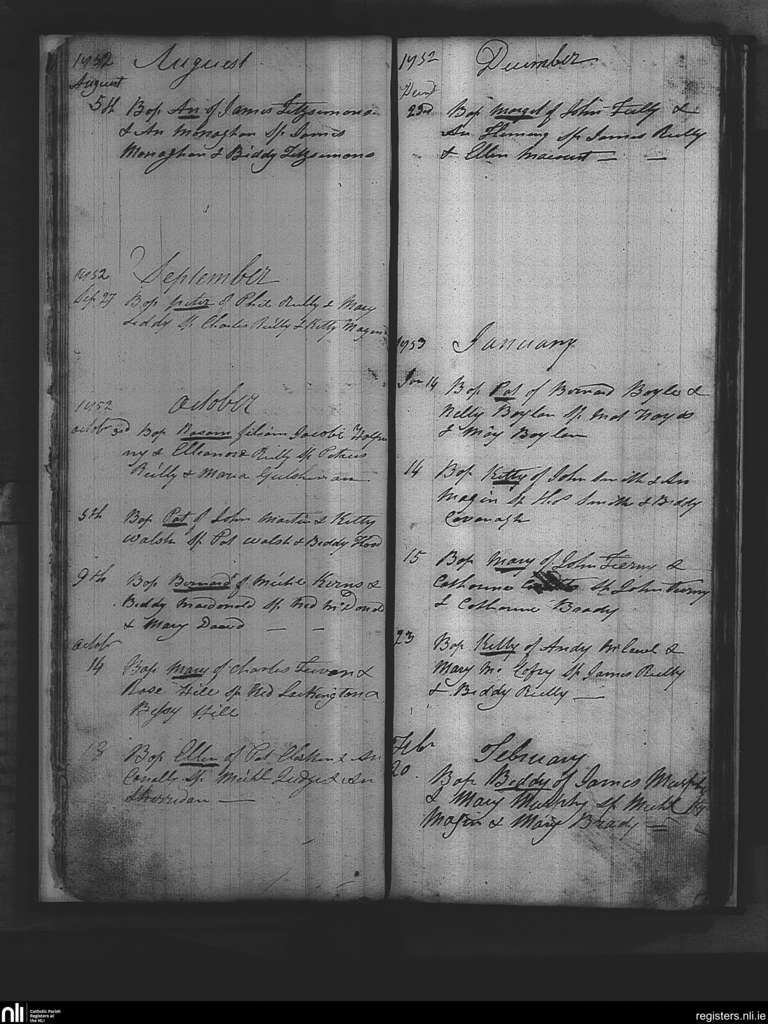 1852 August
August
5th Bap An of James Fitzsimons
& An Monaghan Sp James
Monaghan & Biddy Fitzsimons
1852 September
Sep 27 Bap Peter of Phil Reilly & Mary
Leddy Sp Charles Reilly & Kitty Magin
1852 October
Octob 3rd Bap filiam Jacobi
& Elleanora Reilly Sp Petrus
Reilly & Maria
5th Bap Pat of John Martin & Kitty
Walsh Sp Pat Walsh & Biddy
9th Bap Bernard of Michl Kerns &
Biddy Macdonald Sp Ned McDonald
& Mary
Octob
14 Bap Mary of Charles &
Rose Hill Sp Ned &
Bessy Hill
18 Bap Ellen of Pat & An
Sp Michl Judge & An
Sheridan
1852 December
23rd Bap Margt of John Tully &
An Fleming Sp James Reilly
& Ellen
1853 January
Jan 14 Bap Pat of Bernard Boyle &
Nelly Boylan Sp Mat
& Mary Boylan
14 Bap Kitty of John Smith & An
Magin Sp Smith & Biddy
Cavenagh
15 Bap Mary of John Tierny &
Catharine Sp John Tierny
& Catharine Brady
23 Bap Kitty of Andy &
Mary Mc Sp James Reilly
& Biddy Rielly
Feb February
20 Bap Biddy of James Murphy
& Mary Murphy Sp Michl
Magin & Mary Brady
nli
Catholic Parish
Registers at
the NLI
registers.nli.ie